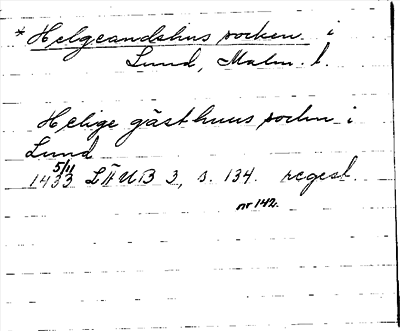 * Helgeandshus socken i
Lund, Malm. l.
Helige gästhuus sockn i
Lund
5/11
1433 LÄUB 3, s. 134. regest.
nr 142.